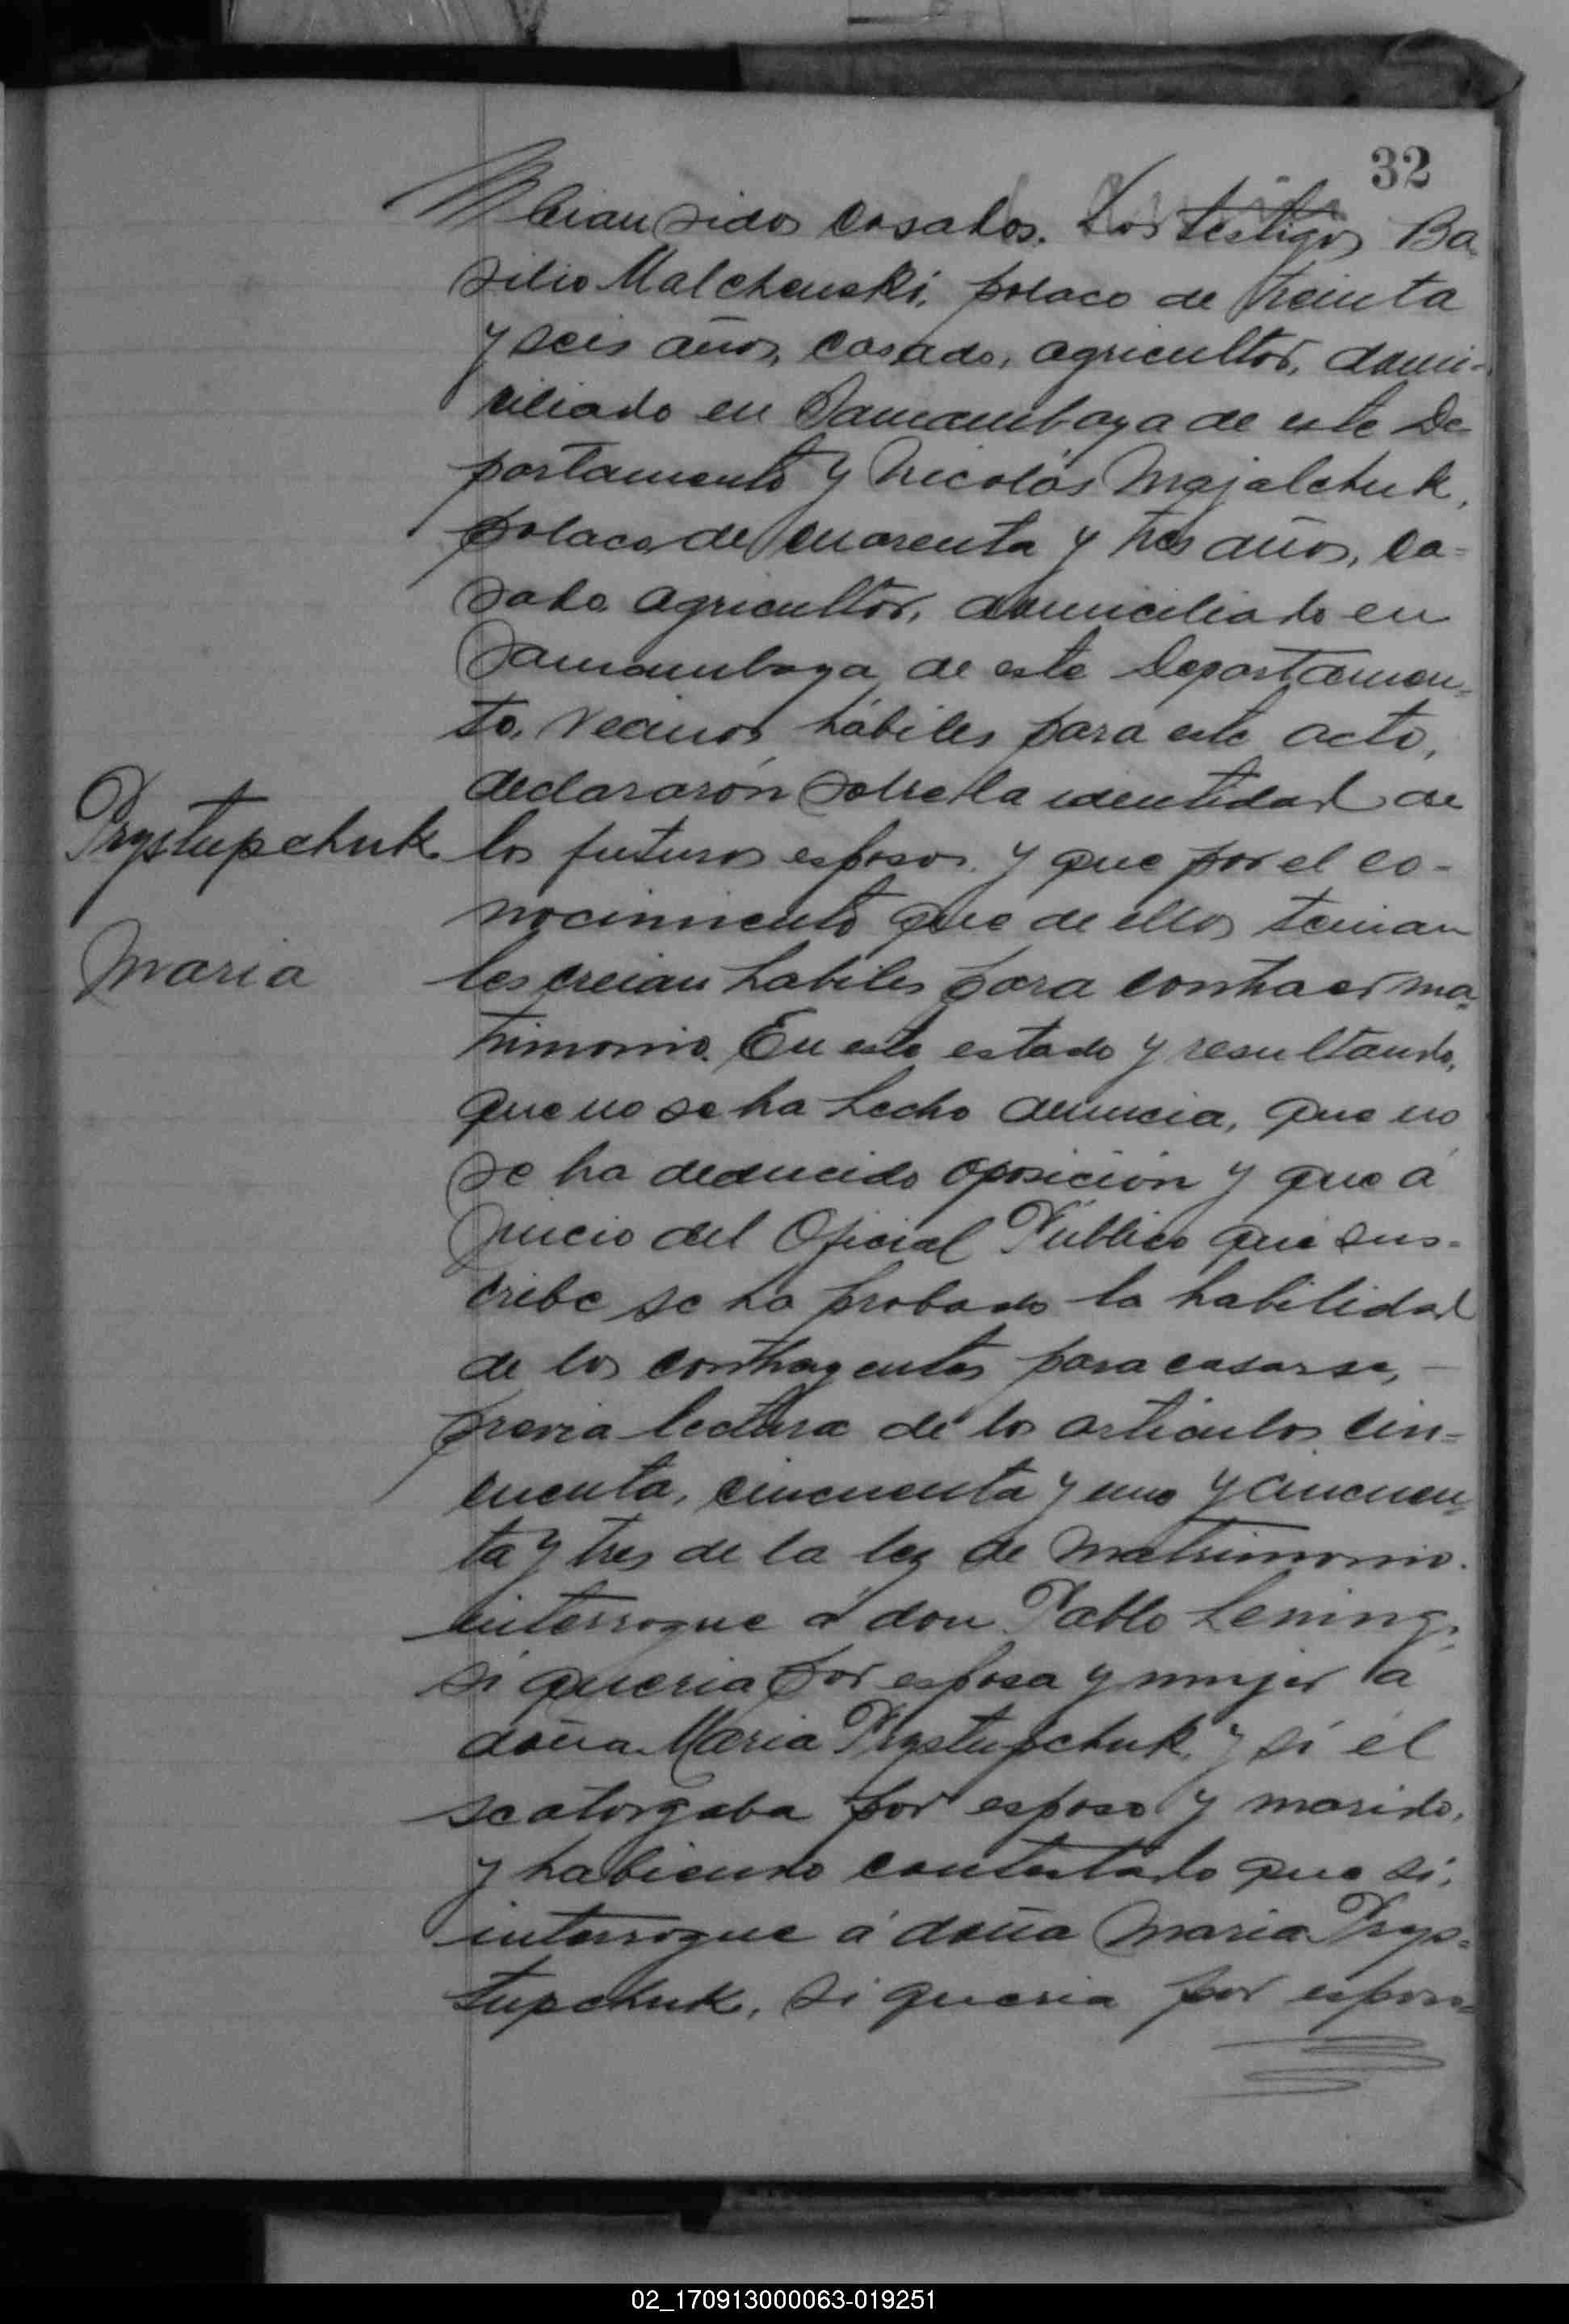 32
bian sido casados. Los testigos Ba-
silio Malchenski, polaco de treinta
y seis años, casado, agricultor, domi-
ciliado en Samambaya de este De-
partamento y Nicolás Majalchuk,
polaco de cuarenta y tres años, ca-
sado agricultor, domiciliado en
Samambaya de este Departamen-
to, vecinos hábiles para este acto,
declararón sobre la identidad de
Prystupchuk
los futuros esposos y que por el co-
nocimiento que de ellos tenian
Maria
les creian habiles para contraer ma-
trimonio. En este estado y resultando,
que no se ha hecho denuncia, que no
se ha deducido oposición y que á
juicio del Oficial Público que sus-
cribe se ha probado la habilidad
de los contrayentes para casarse,
previa lectura de los articulos cin-
cuenta, cincuenta y uno y cincuen-
ta y tres de la ley de matrimonio.
interrogue á don Pablo Lening,
si queria por esposa y mujer á
doña Maria Prystupchuk, y si él
se otorgaba por esposo y marido,
y habiendo contestado que si,
interrogue á doña Maria Prys-
tupchuk, si queria por esposo
02_170913000063-019251